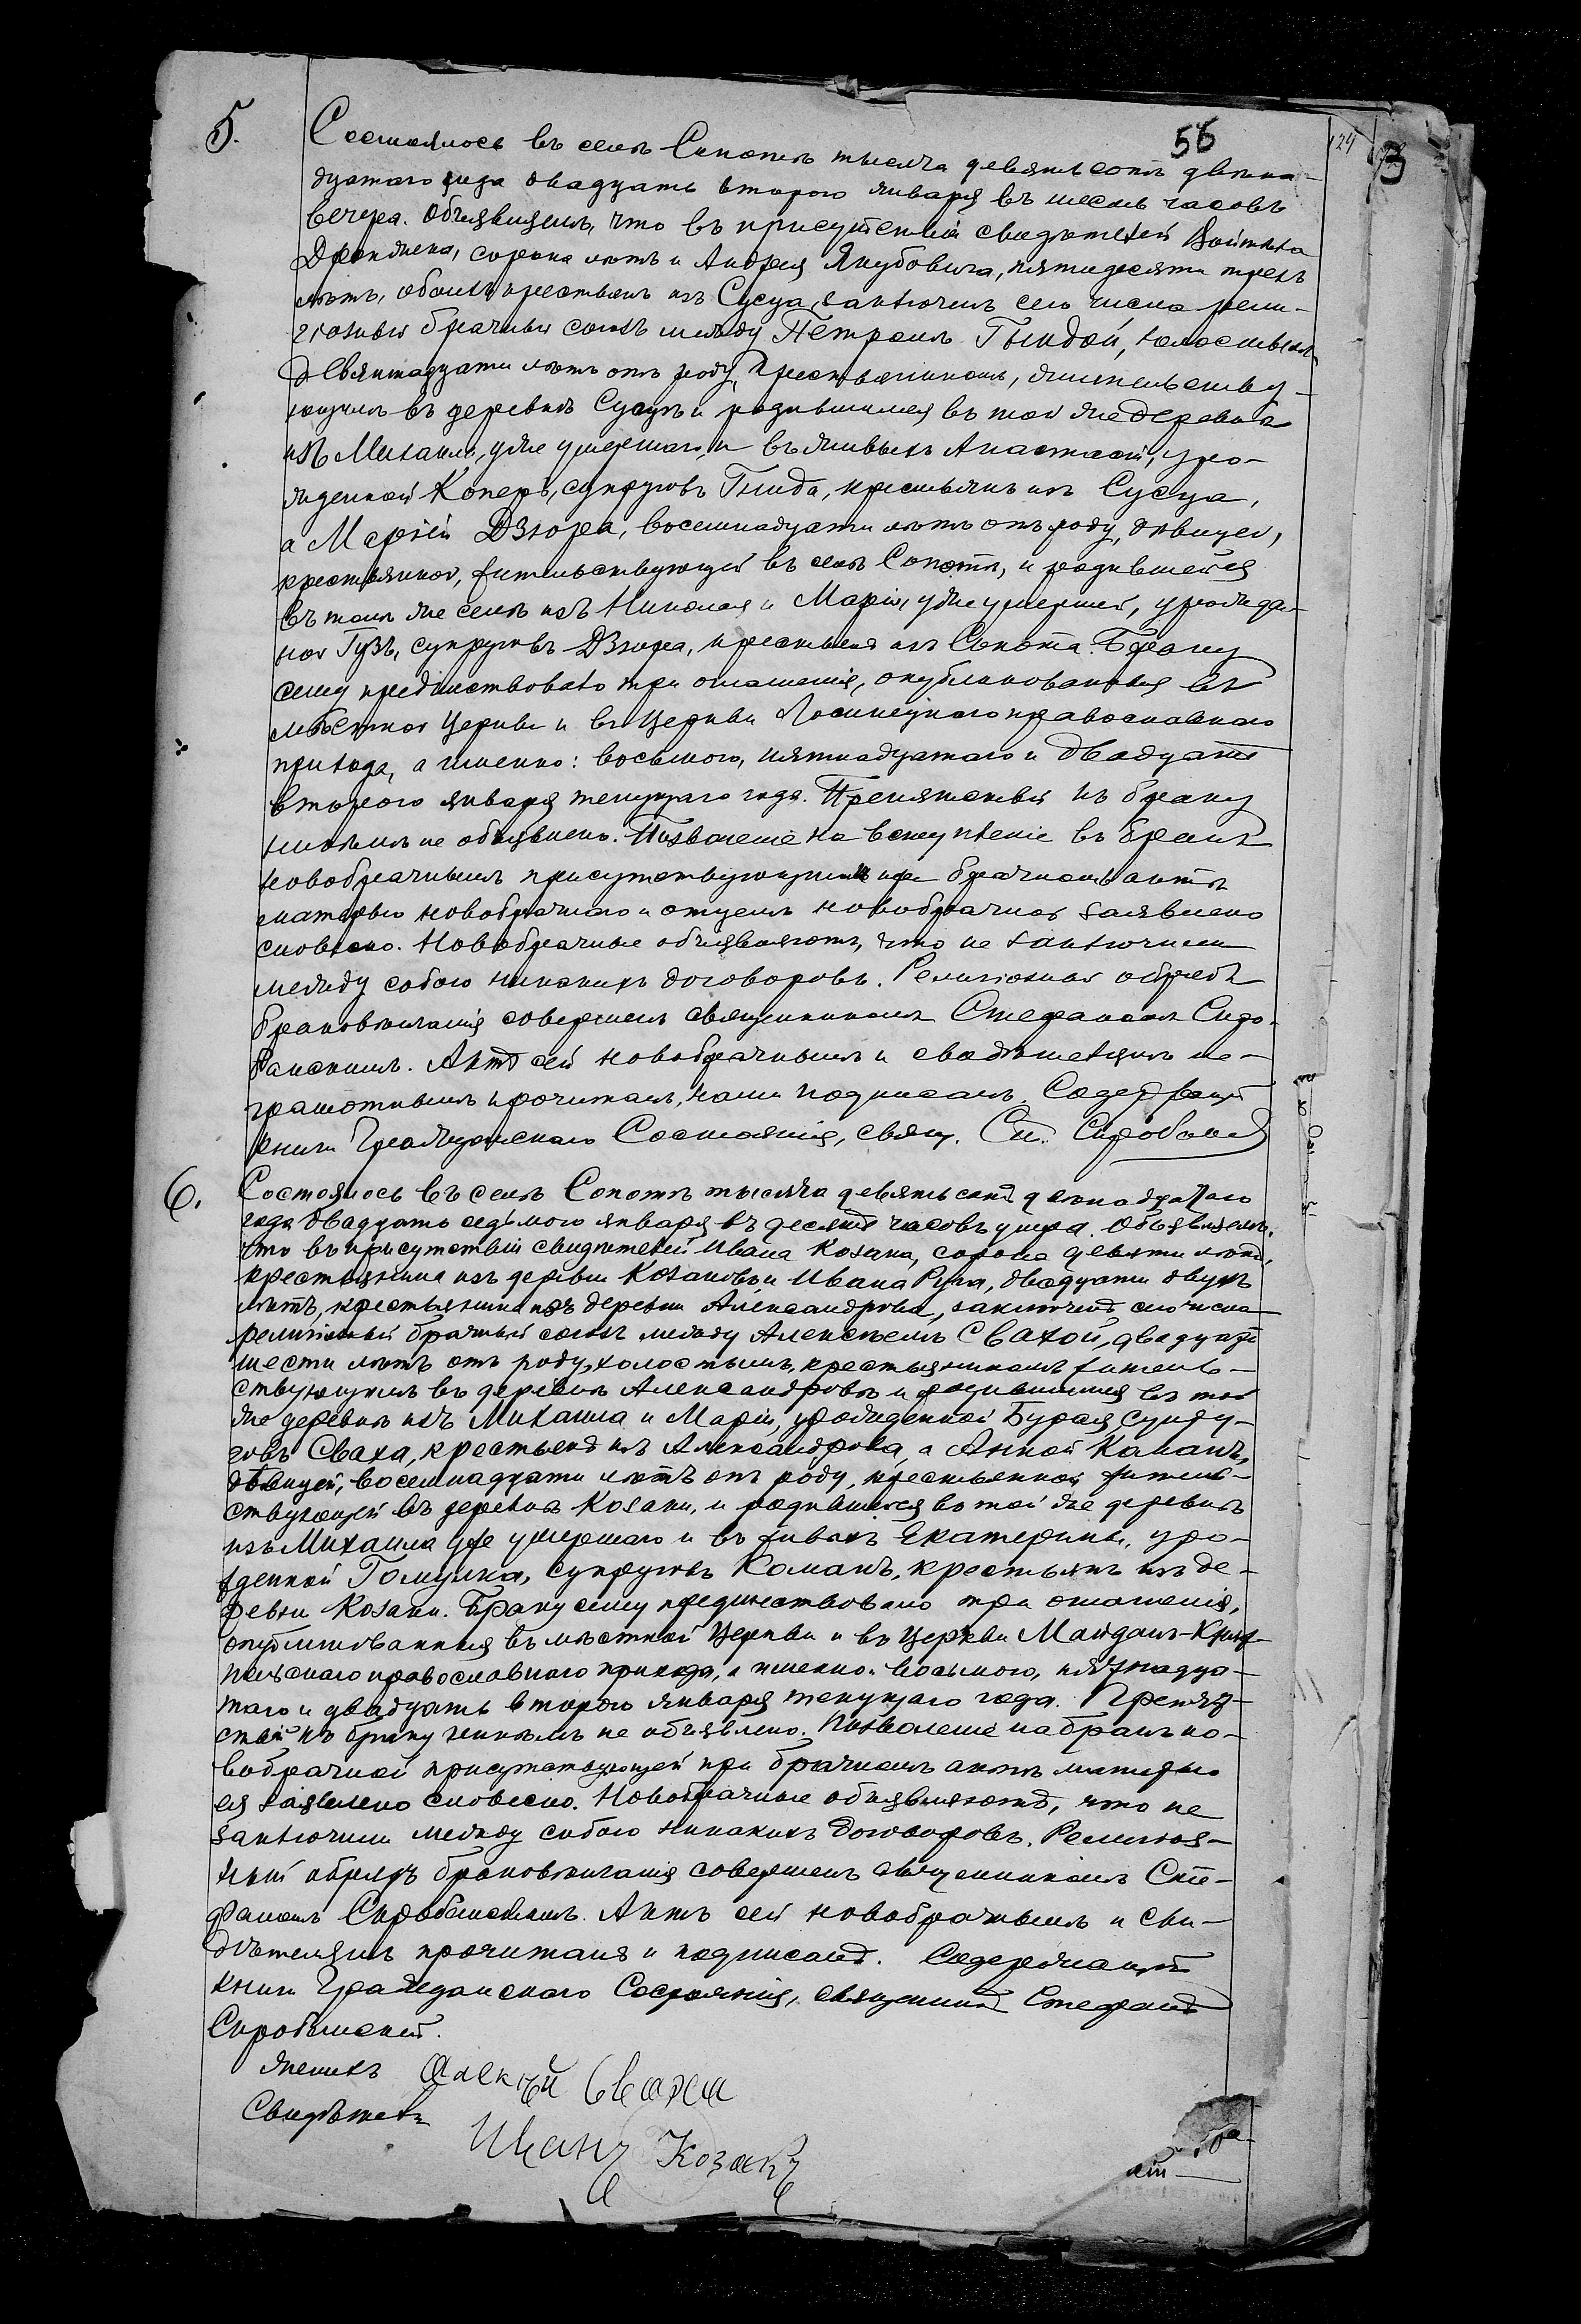 56
124
3
5.
Состоялось въ селѣ Сопотѣ тысяча девятьсотъ двѣна-
дцатаго года двадцать второго января въ шесть часовъ
вечера. Объявляемъ, что въ присутствіи свидѣтелей Войтѣха
сорока лѣтъ и Андрея Якубовича, пятидесяти трехъ
лѣтъ, обоихъ крестьянъ изъ Сусца, заключенъ сего числа рели-
гіозный брачный союзъ между Петромъ Гныдой, холостымъ,
девятнадцати лѣтъ отъ роду, крестьяниномъ, жительству-
ющимъ въ деревнѣ Сусцѣ и родившимся въ той же деревнѣ
изъ Михаила, уже умершаго, и въ живыхъ Анастасіи, уро-
жденной Коперъ, супруговъ Гныда, крестьянъ изъ Сусца,
а Маріей Дзюра, восемнадцати лѣтъ отъ роду, дѣвицей,
крестьянкой, жительствующей въ селѣ Сопотѣ, и родившейся
въ томъ же селѣ изъ Николая и Маріи, уже умершей, урожден-
ной Гузъ, супруговъ Дзюра, крестьянъ изъ Сопота. Браку
сему предшествовало три оглашенія, опубликованныя въ
мѣстной Церкви и въ Церкви Лосинецкаго православнаго
прихода, а именно: восьмого, пятнадцатаго и двадцать
второго января текущаго года. Препятствій къ браку
никѣмъ не объявлено. Позволеніе на вступленіе въ бракъ
новобрачнымъ присутствующими при брачномъ актѣ
матерью новобрачнаго и отцемъ новобрачной заявлено
словесно. Новобрачные объявляютъ, что не заключили
между собою никакихъ договоровъ. Религіозный обрядъ
браковѣнчанія совершенъ священникомъ Стефаномъ Скро-
банскимъ. Актъ сей новобрачнымъ и свидѣтелямъ не-
грамотнымъ прочитанъ, нами подписанъ. Содержащій
книги Гражданскаго Состоянія, свящ. Ст. Скробанскій
6.
Состоялось въ селѣ Сопотѣ тысяча девятьсотъ двѣнадцатаго
года двадцать седьмого января въ десять часовъ утра. Объявляемъ,
что въ присутствіи свидѣтелей Ивана Козака, сорока девяти лѣтъ,
крестьянина изъ деревни Козаковъ и Ивана двадцати двухъ
лѣтъ, крестьянина изъ деревни Александрова, заключенъ сего числа
религіозный брачный союзъ между Алексѣемъ Свахой, двадцати
шести лѣтъ отъ роду, холостымъ, крестьяниномъ житель-
ствующимъ въ деревнѣ Александровѣ и родившимся въ той
же деревнѣ изъ Михаила и Маріи, урожденной Бурая, супру-
говъ Сваха, крестьянъ изъ Александрова, а Анной Каманъ,
дѣвицей, восемнадцати лѣтъ отъ роду, крестьянкой житель-
ствующей въ деревнѣ Козаки, и родившейся въ той же деревнѣ
изъ Михаила уже умершаго и въ живыхъ Екатерины, уро-
жденной Гомулка, супруговъ Команъ, крестьянъ изъ де-
ревни Козаки. Браку сему предшествовало три оглашенія,
опубликованныя въ мѣстной Церкви и въ Церкви Майданъ-
православнаго прихода, а именно: восьмого, пятнадца-
таго и двадцать второго января текущаго года. Препят-
ствій къ браку никѣмъ не объявлено. Позволеніе на бракъ но-
вобрачной присутствующей при брачномъ актѣ матерью
ея заявлено словесно. Новобрачные объявляютъ, что не
заключили между собою никакихъ договоровъ. Религіоз-
ный обрядъ браковѣнчанія совершенъ священникомъ Сте-
фаномъ Скробанскимъ. Актъ сей новобрачнымъ и сви-
дѣтелямъ прочитанъ и подписанъ. Содержащій
книги Гражданскаго Состоянія, священникъ Стефанъ
Скробанскій.
Женихъ Алексѣй Сваха
Свидѣтель
Иванъ Козакъ